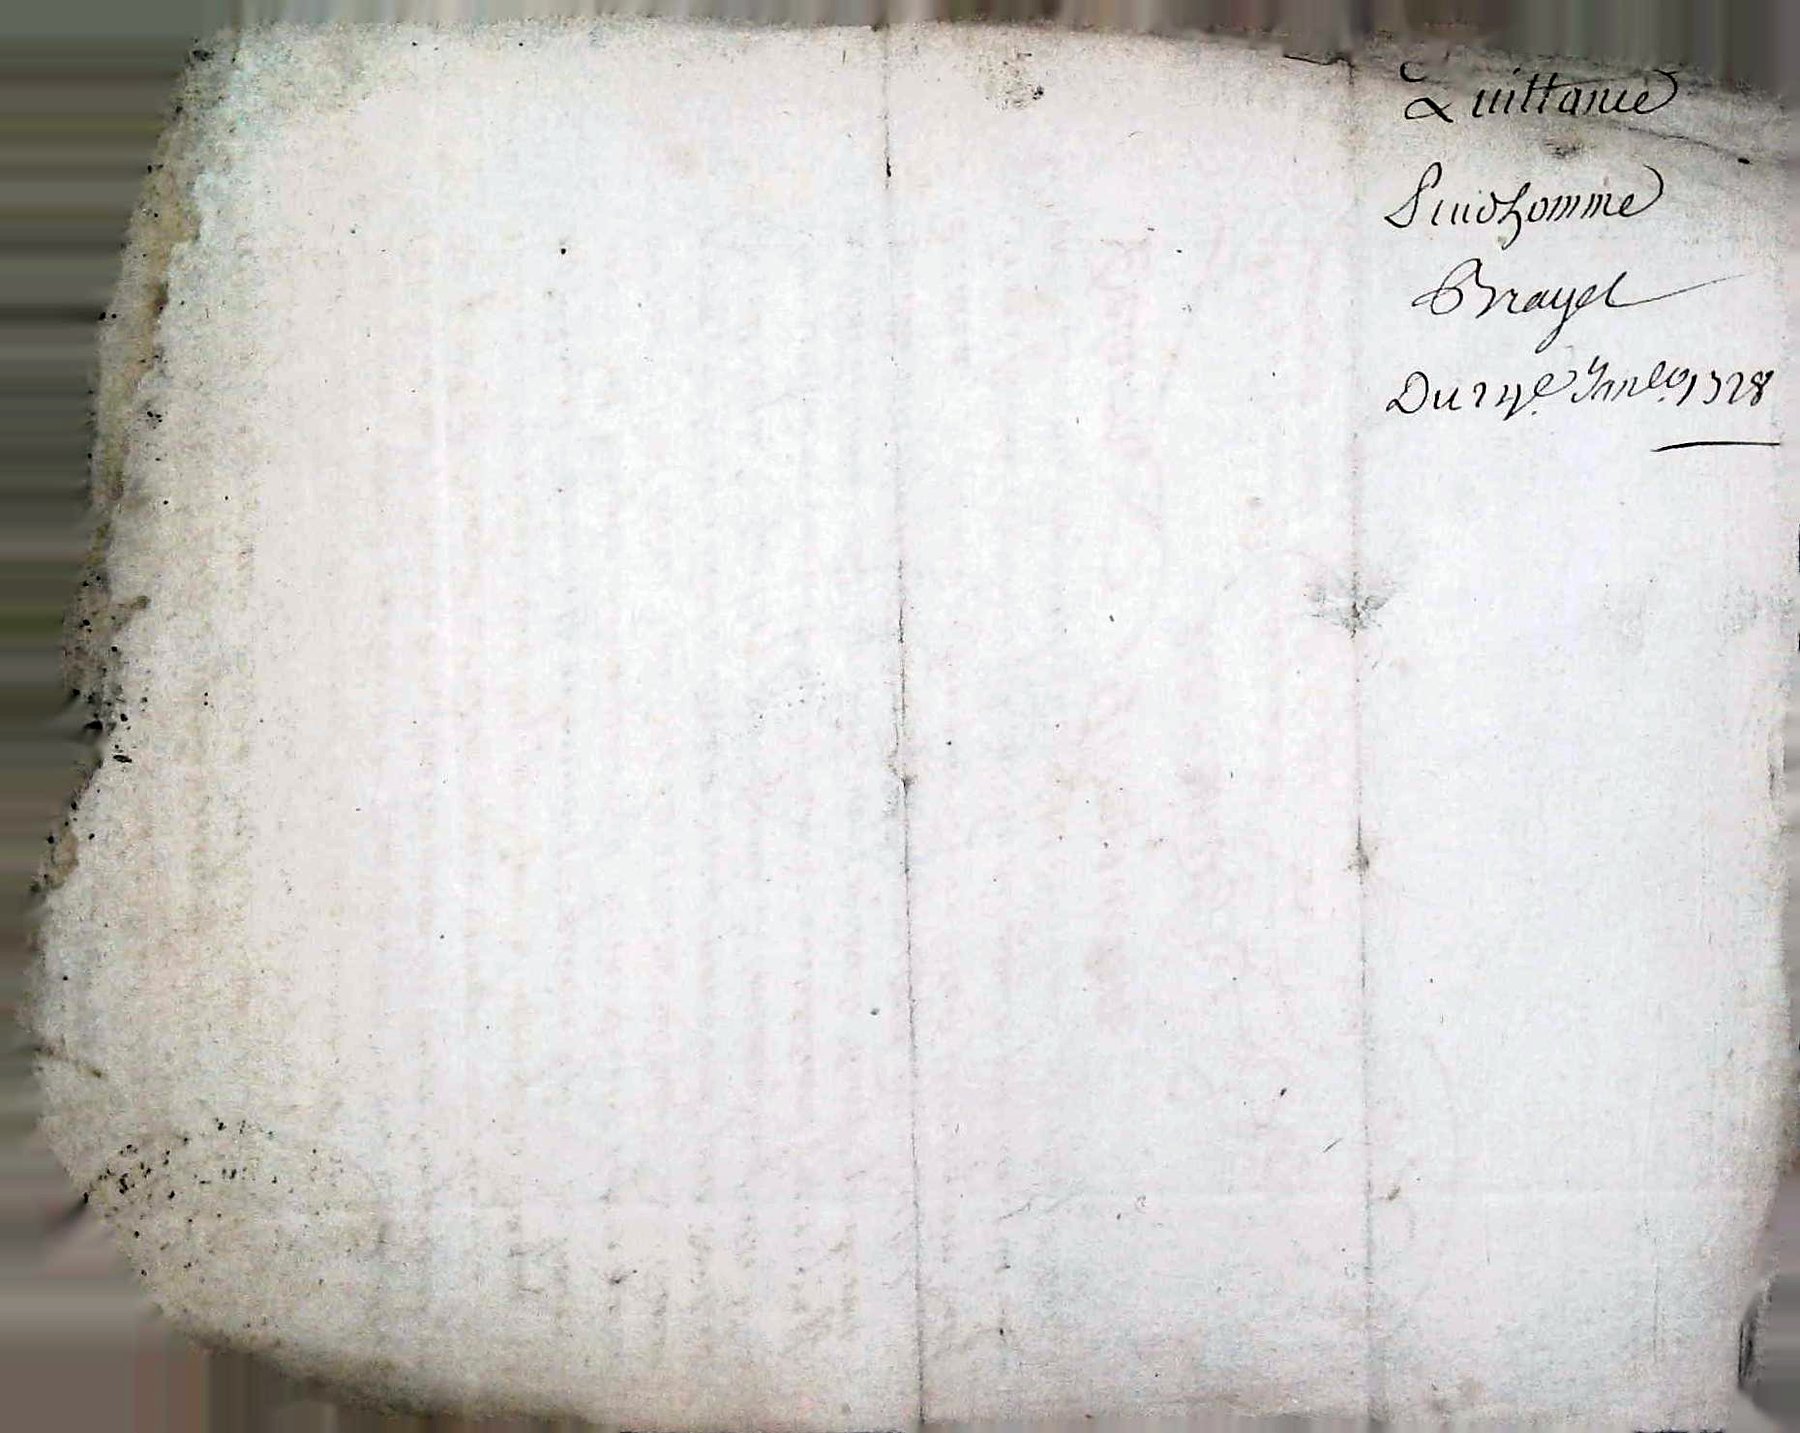 Quittance
Prudhomme
Brayet
Du 24e Janer. 1728